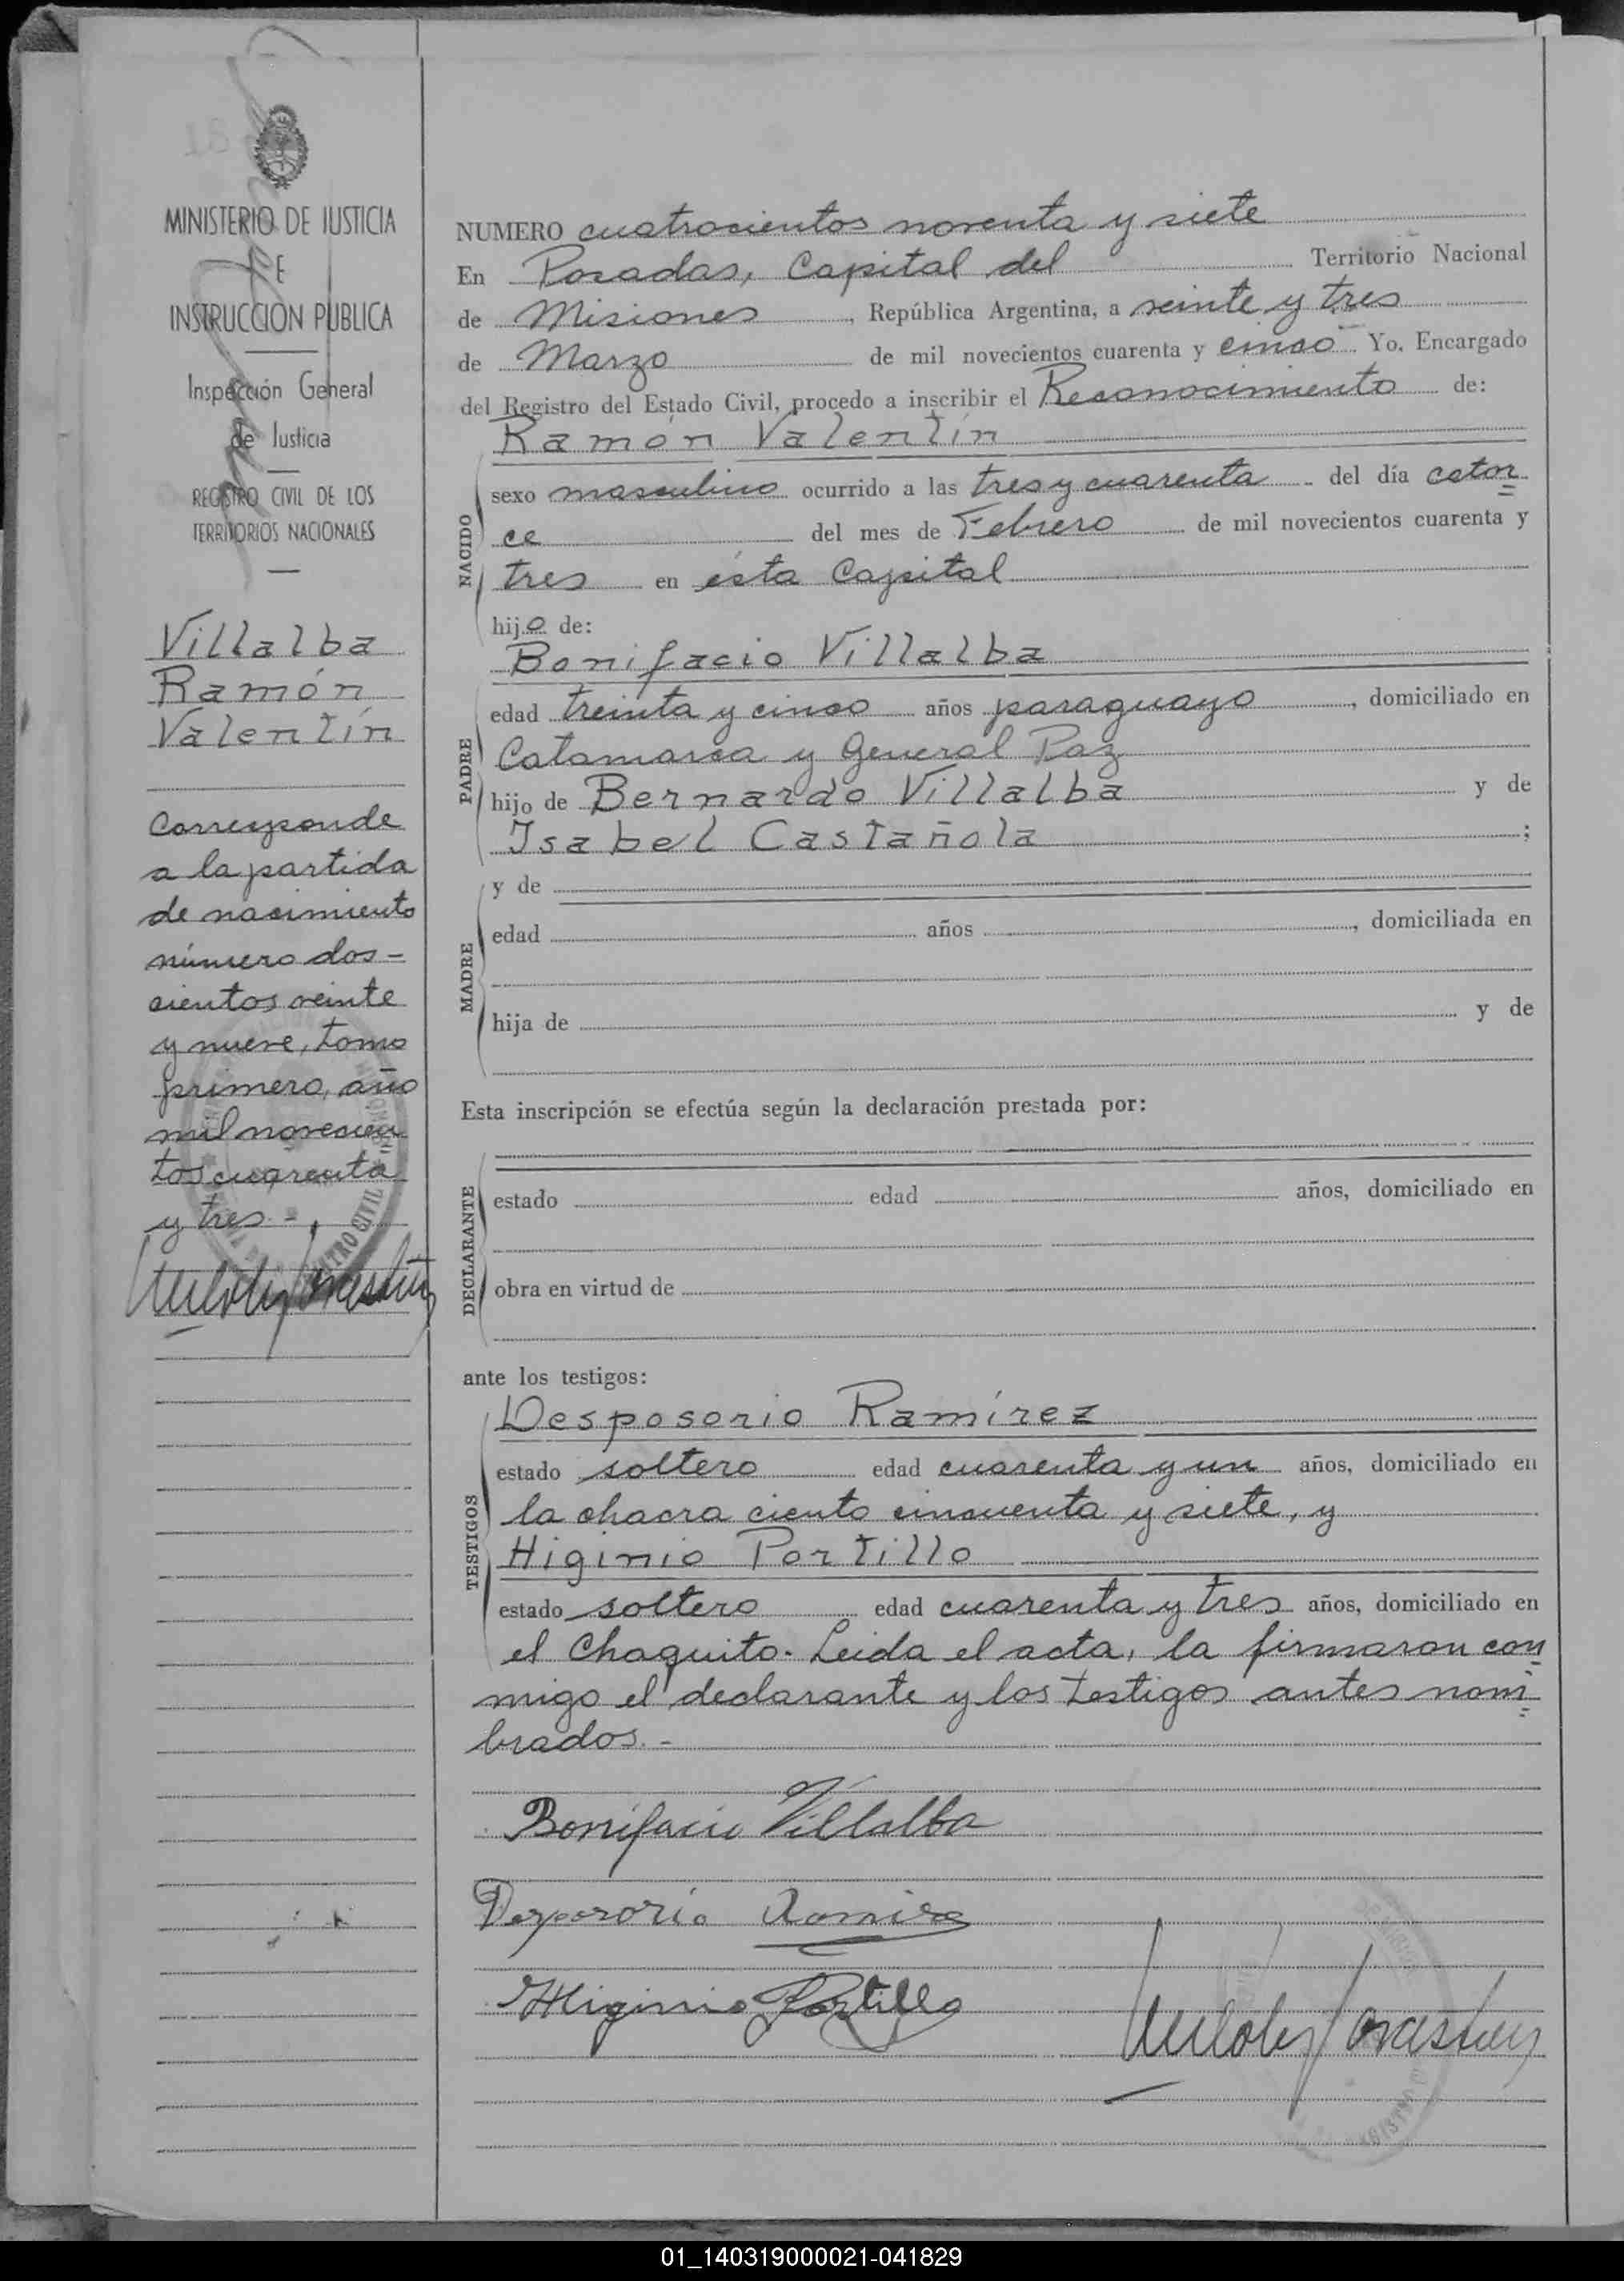 MINISTERIO DE JUSTICIA
E
INSTRUCCION PUBLICA
Inspección General
de Justicia
REGISTRO CIVIL DE LOS
TERRITORIOS NACIONALES
Villalba
Ramón
Valentín
Corresponde
a la partida
de nacimiento
número dos-
cientos veinte
y nueve, tomo
primero, año
mil novecien
tos cuarenta
y tres.-
NUMERO cuatrocientos noventa y siete
En Posadas, Capital del Territorio Nacional
de Misiones, República Argentina, a veinte y tres
de Marzo de mil novecientos cuarenta y cinco. Yo, Encargado
del Registro del Estado Civil, procedo a inscribir el Reconocimiento de:
Ramón Valentín
NACIDO
sexo masculino ocurrido a las tres y cuarenta del día cator
ce del mes de Febrero de mil novecientos cuarenta y
tres en ésta Capital
hijo de:
Bonifacio Villalba
PADRE
edad treinta y cinco años paraguayo, domiciliado en
Catamarca y General Paz
hijo de Bernardo Villalba y de
Isabel Castañola;
y de
MADRE
edad años, domiciliada en
hija de y de
Esta inscripción se efectúa según la declaración prestada por:
DECLARANTE
estado edad años, domiciliado en
obra en virtud de
ante los testigos:
Desposorio Ramírez
TESTIGOS
estado soltero edad cuarenta y un años, domiciliado en
la chacra ciento cincuenta y siete, y
Higinio Portillo
estado soltero edad cuarenta y tres años, domiciliado en
el Chaquito. Leida el acta, la firmaron con
migo el declarante y los testigos antes nom
brados.-
Bonifacio Villalba
Desposorio Ramirez
Higinio Portillo
01_140319000021-041829